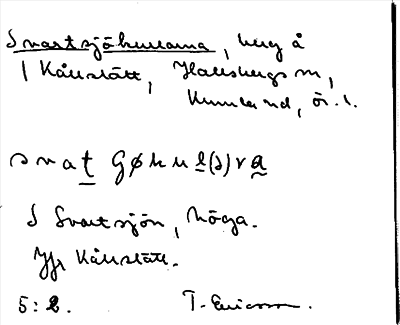 Svartsjökullarna, berg å
1 Kårstätt, Hallsbergs sn,
Kumla hd, ör. l.
svat Gøku l(ə)ra
S Svartsjön, höga.
Jfr Kårstätt.
5:2. T. Ericsson.